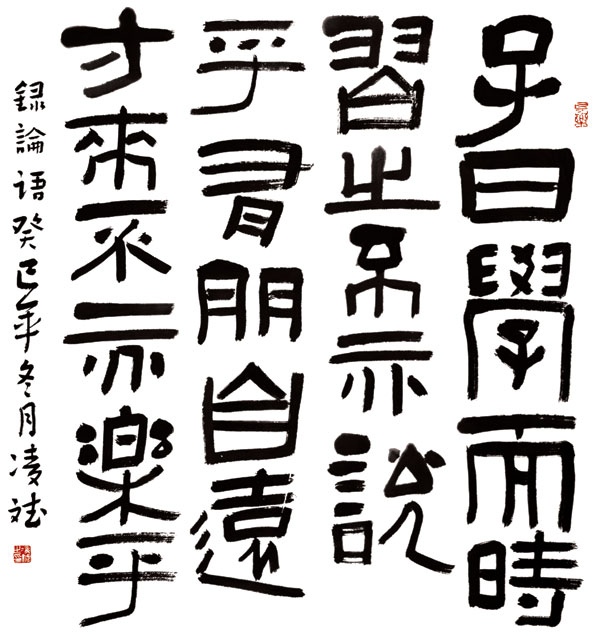 子曰學而時
習之不亦說
乎有朋自遠
方來不亦樂乎
錄論语癸巳年冬月凌斌